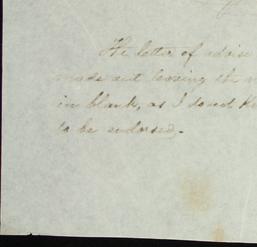 The letter of advise
made out leaving the
in blank, as I
to be endorsed.